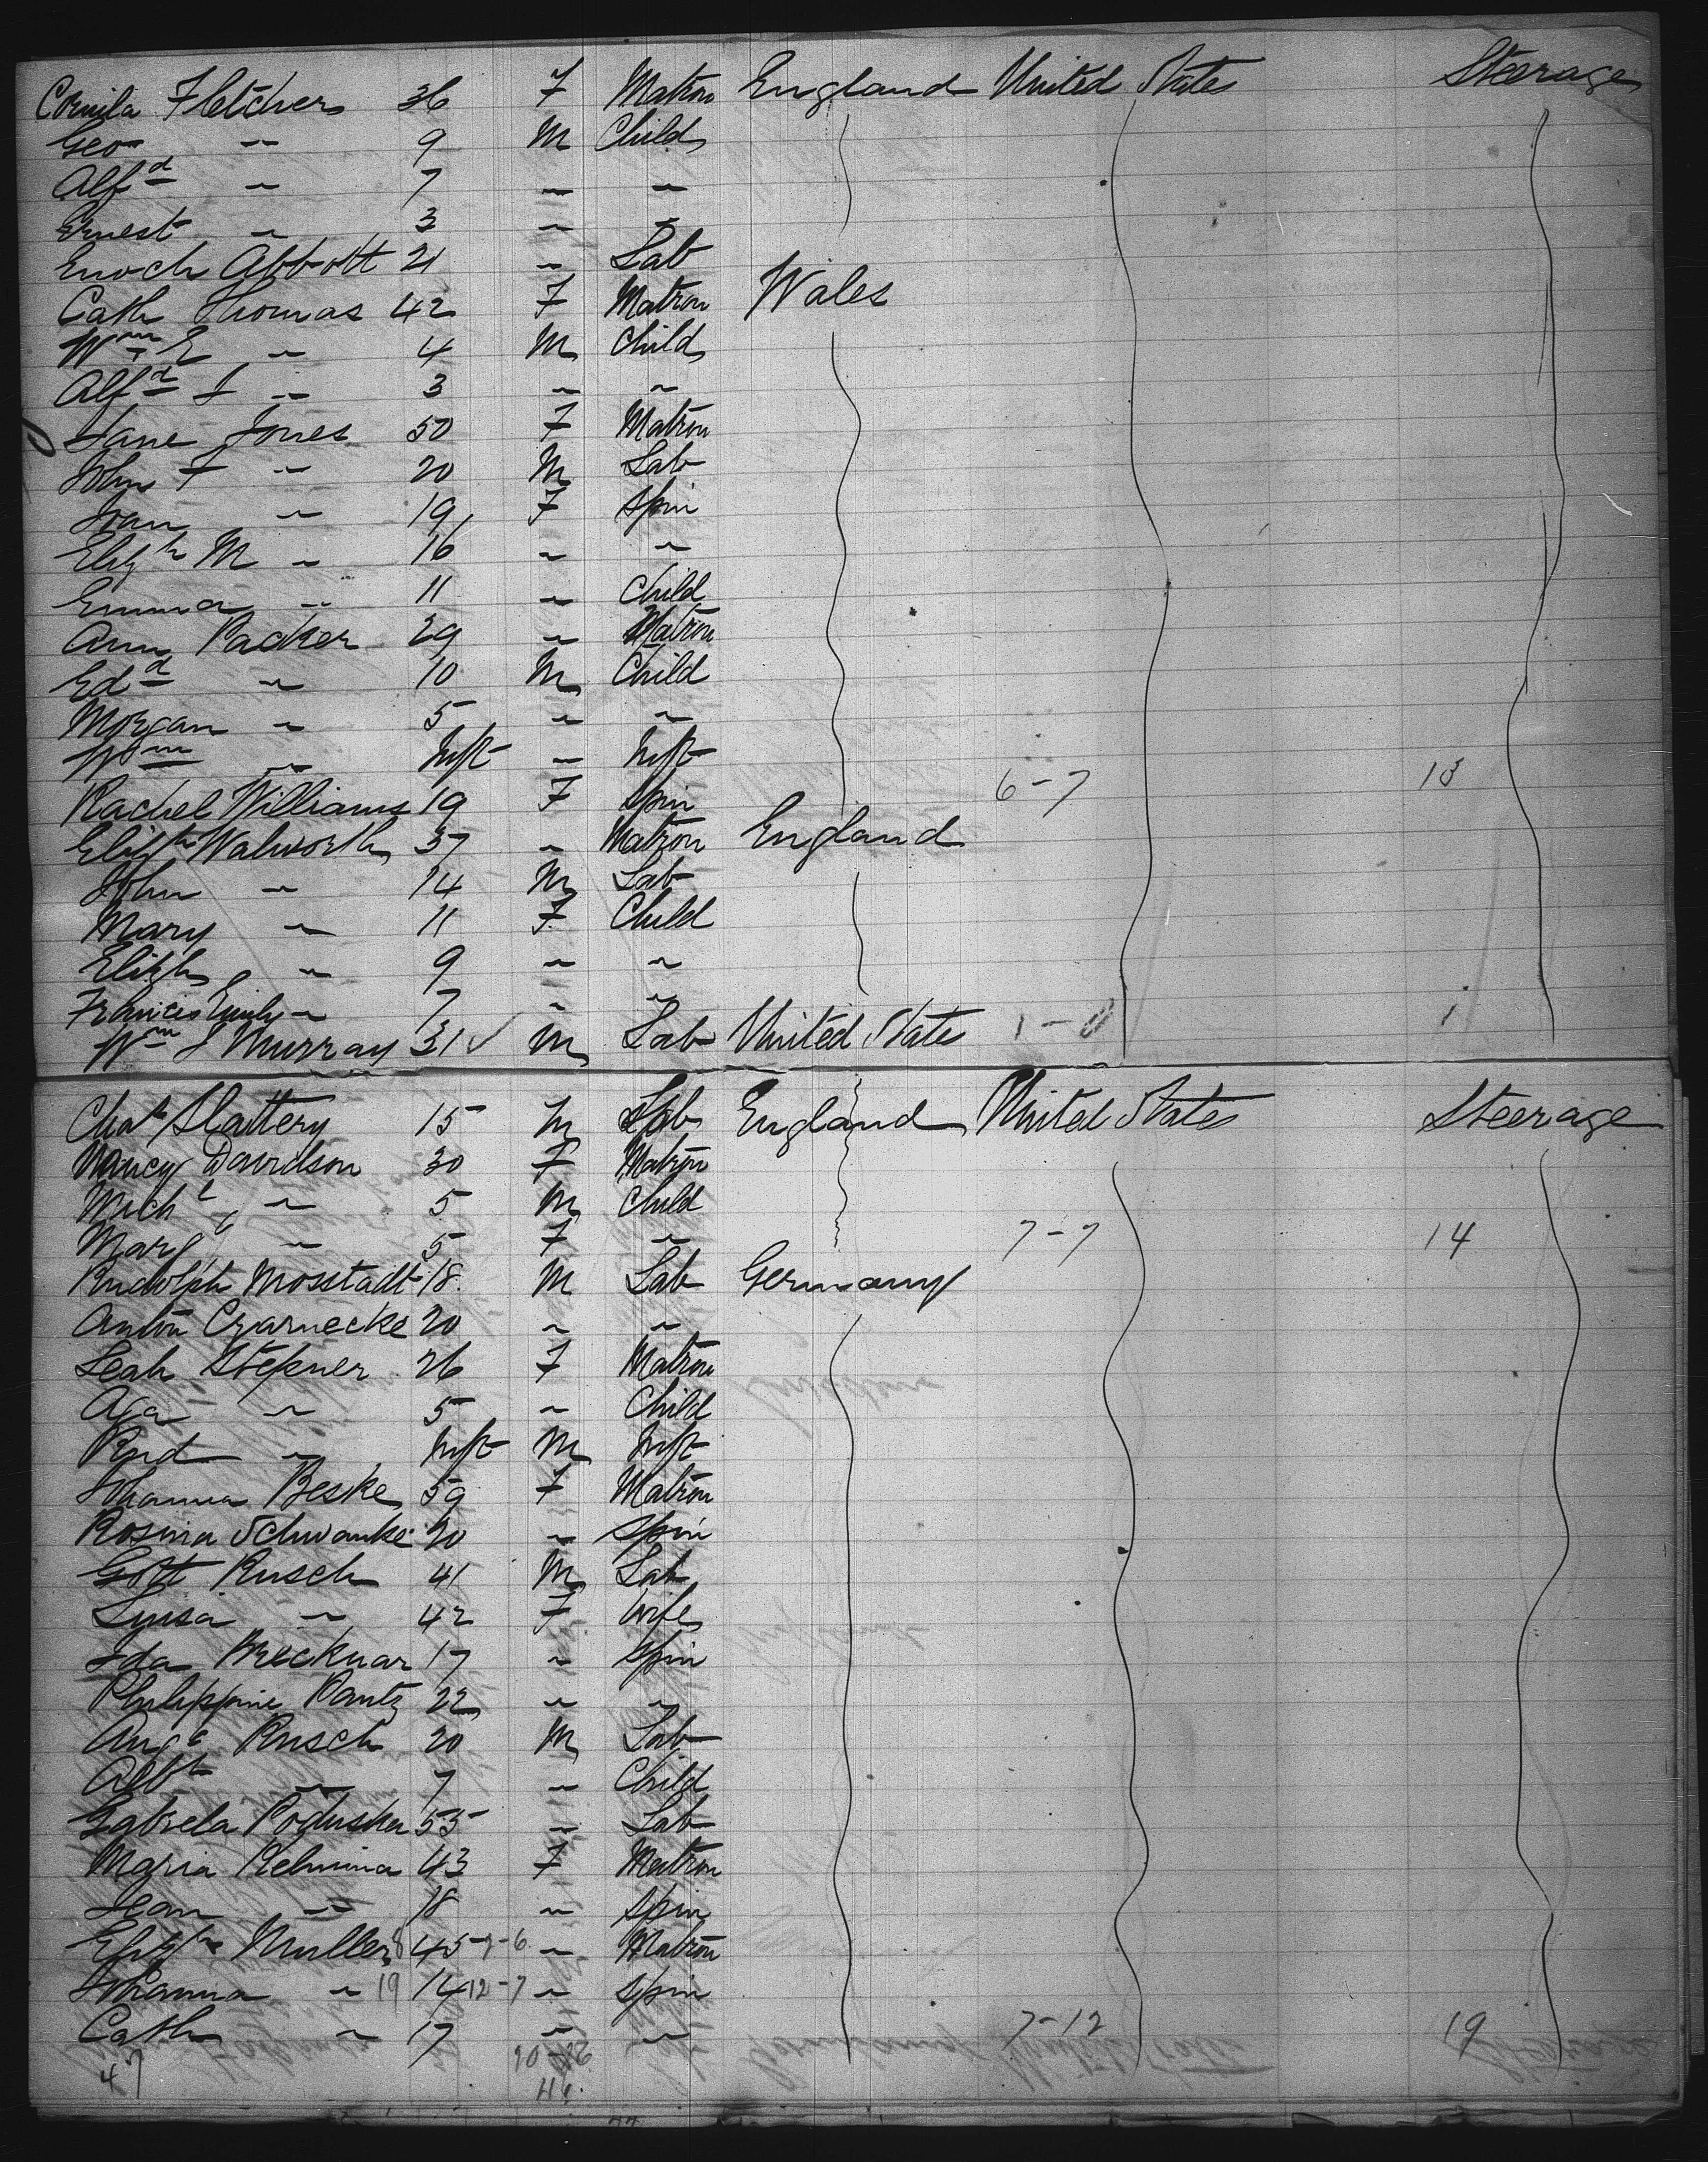 Cornila Fletcher 36 F Matron England United States Steerage
Geo " 9 M Child
Alfd " 7 " "
Ernest " 3 " "
Enoch Abbott 21 " Lab
Cath Thomas 42 F Matron Wales
Wm E " 4 M Child
Alfd J " 3 " "
Jane Jones 50 F Matron
John F " 20 M Lab
Joan " 19 F Spin
Elizh M " 16 " "
Emma " 11 " Child
Ann Packer 29 " Matron
Edd " 10 M Child
Morgan " 5 " "
Wm " Inft " Inft
Rachel Williams 19 F Spin 6-7 13
Elizth Walworth 37 " Matron England
John " 14 M Lab
Mary " 11 F Child
Elizh " 9 " "
Francis Emily " 7 " "
Wm J Murray 31 ✓ M Lab United States 1-0 1
Chas Slattery 15 M Lab England United States Steerage
Nancy Davidson 30 F Matron
Michl " 5 M Child
Margt " 5 F " 7-7 14
Rudolph Mosstadt 18 M Lab Germany
Anton Czarnecke 20 " "
Leah Stepner 26 F Matron
Aga " 5 " Child
Rud " Inft M Inft
Johanna Beske 59 F Matron
Rosina Schwanke 20 " Spin
Gott Rusch 41 M Lab
Luisa " 42 F Wife
Ida 17 " Spin
Philippine Rantz 22 " "
Auge Rusch 20 M Lab
Albt " 7 " Child
Gabriela 55 " Lab
Maria 43 F Matron
Jean " 18 " Spin
Elizth Muller 8 45 7-6 " Matron
Johanna " 19 14 12-7 " Spin
Cath " 17 " " 7-12 19
47